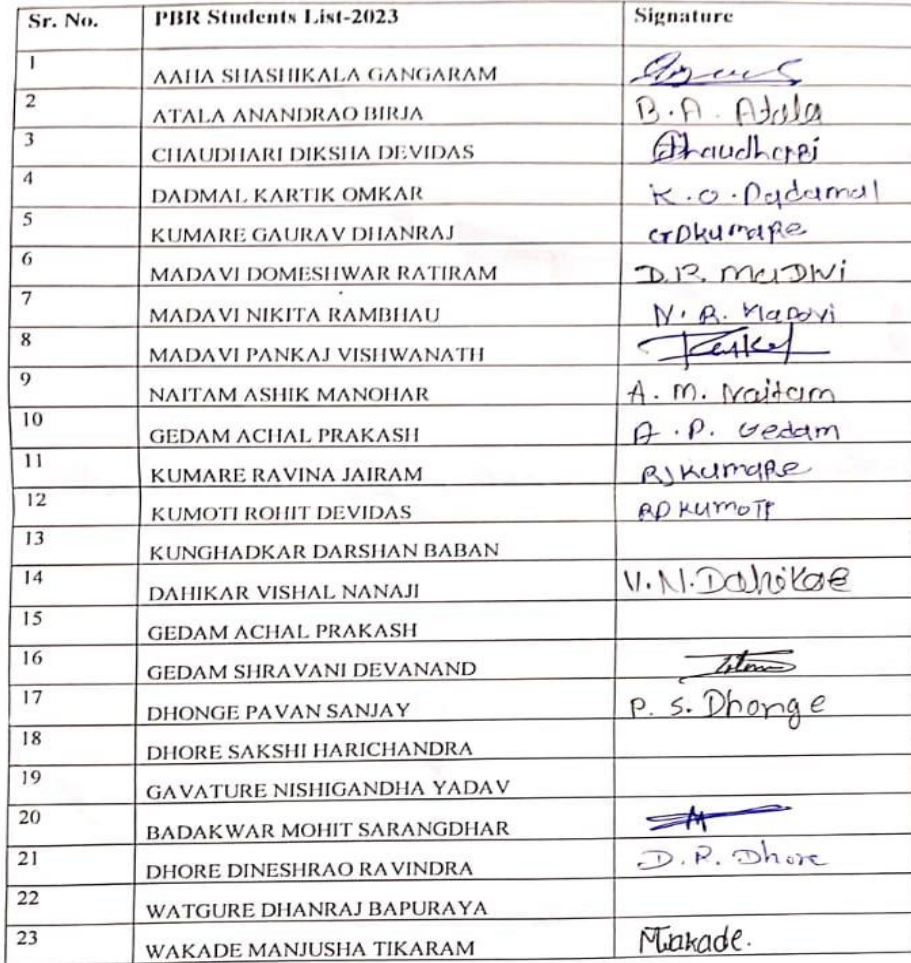 Sr. No. PBR Students List-2023 Signature
1 AAHA SHASHIKALA GANGARAM
2 ATALA ANANDRAO BIRJA B.A. Atala
3 CHAUDHARI DIKSHA DEVIDAS Chaudhari
4 DADMAL KARTIK OMKAR K.O.Dadamal
5 KUMARE GAURAV DHANRAJ GDKumaRe
6 MADAVI DOMESHWAR RATIRAM D.R. MaDavi
7 MADAVI NIKITA RAMBHAU N.R. Madavi
8 MADAVI PANKAJ VISHWANATH
9 NAITAM ASHIK MANOHAR A.M. Naitam
10 GEDAM ACHAL PRAKASH A.P. Gedam
11 KUMARE RAVINA JAIRAM RJKumaRe
12 KUMOTI ROHIT DEVIDAS RDKumoTi
13 KUNGHADKAR DARSHAN BABAN
14 DAHIKAR VISHAL NANAJI V.N.Dahikar
15 GEDAM ACHAL PRAKASH
16 GEDAM SHRAVANI DEVANAND
17 DHONGE PAVAN SANJAY P. S. Dhonge
18 DHORE SAKSHI HARICHANDRA
19 GAVATURE NISHIGANDHA YADAV
20 BADAKWAR MOHIT SARANGDHAR
21 DHORE DINESHRAO RAVINDRA D.R. Dhore
22 WATGURE DHANRAJ BAPURAYA
23 WAKADE MANJUSHA TIKARAM Mwakade.